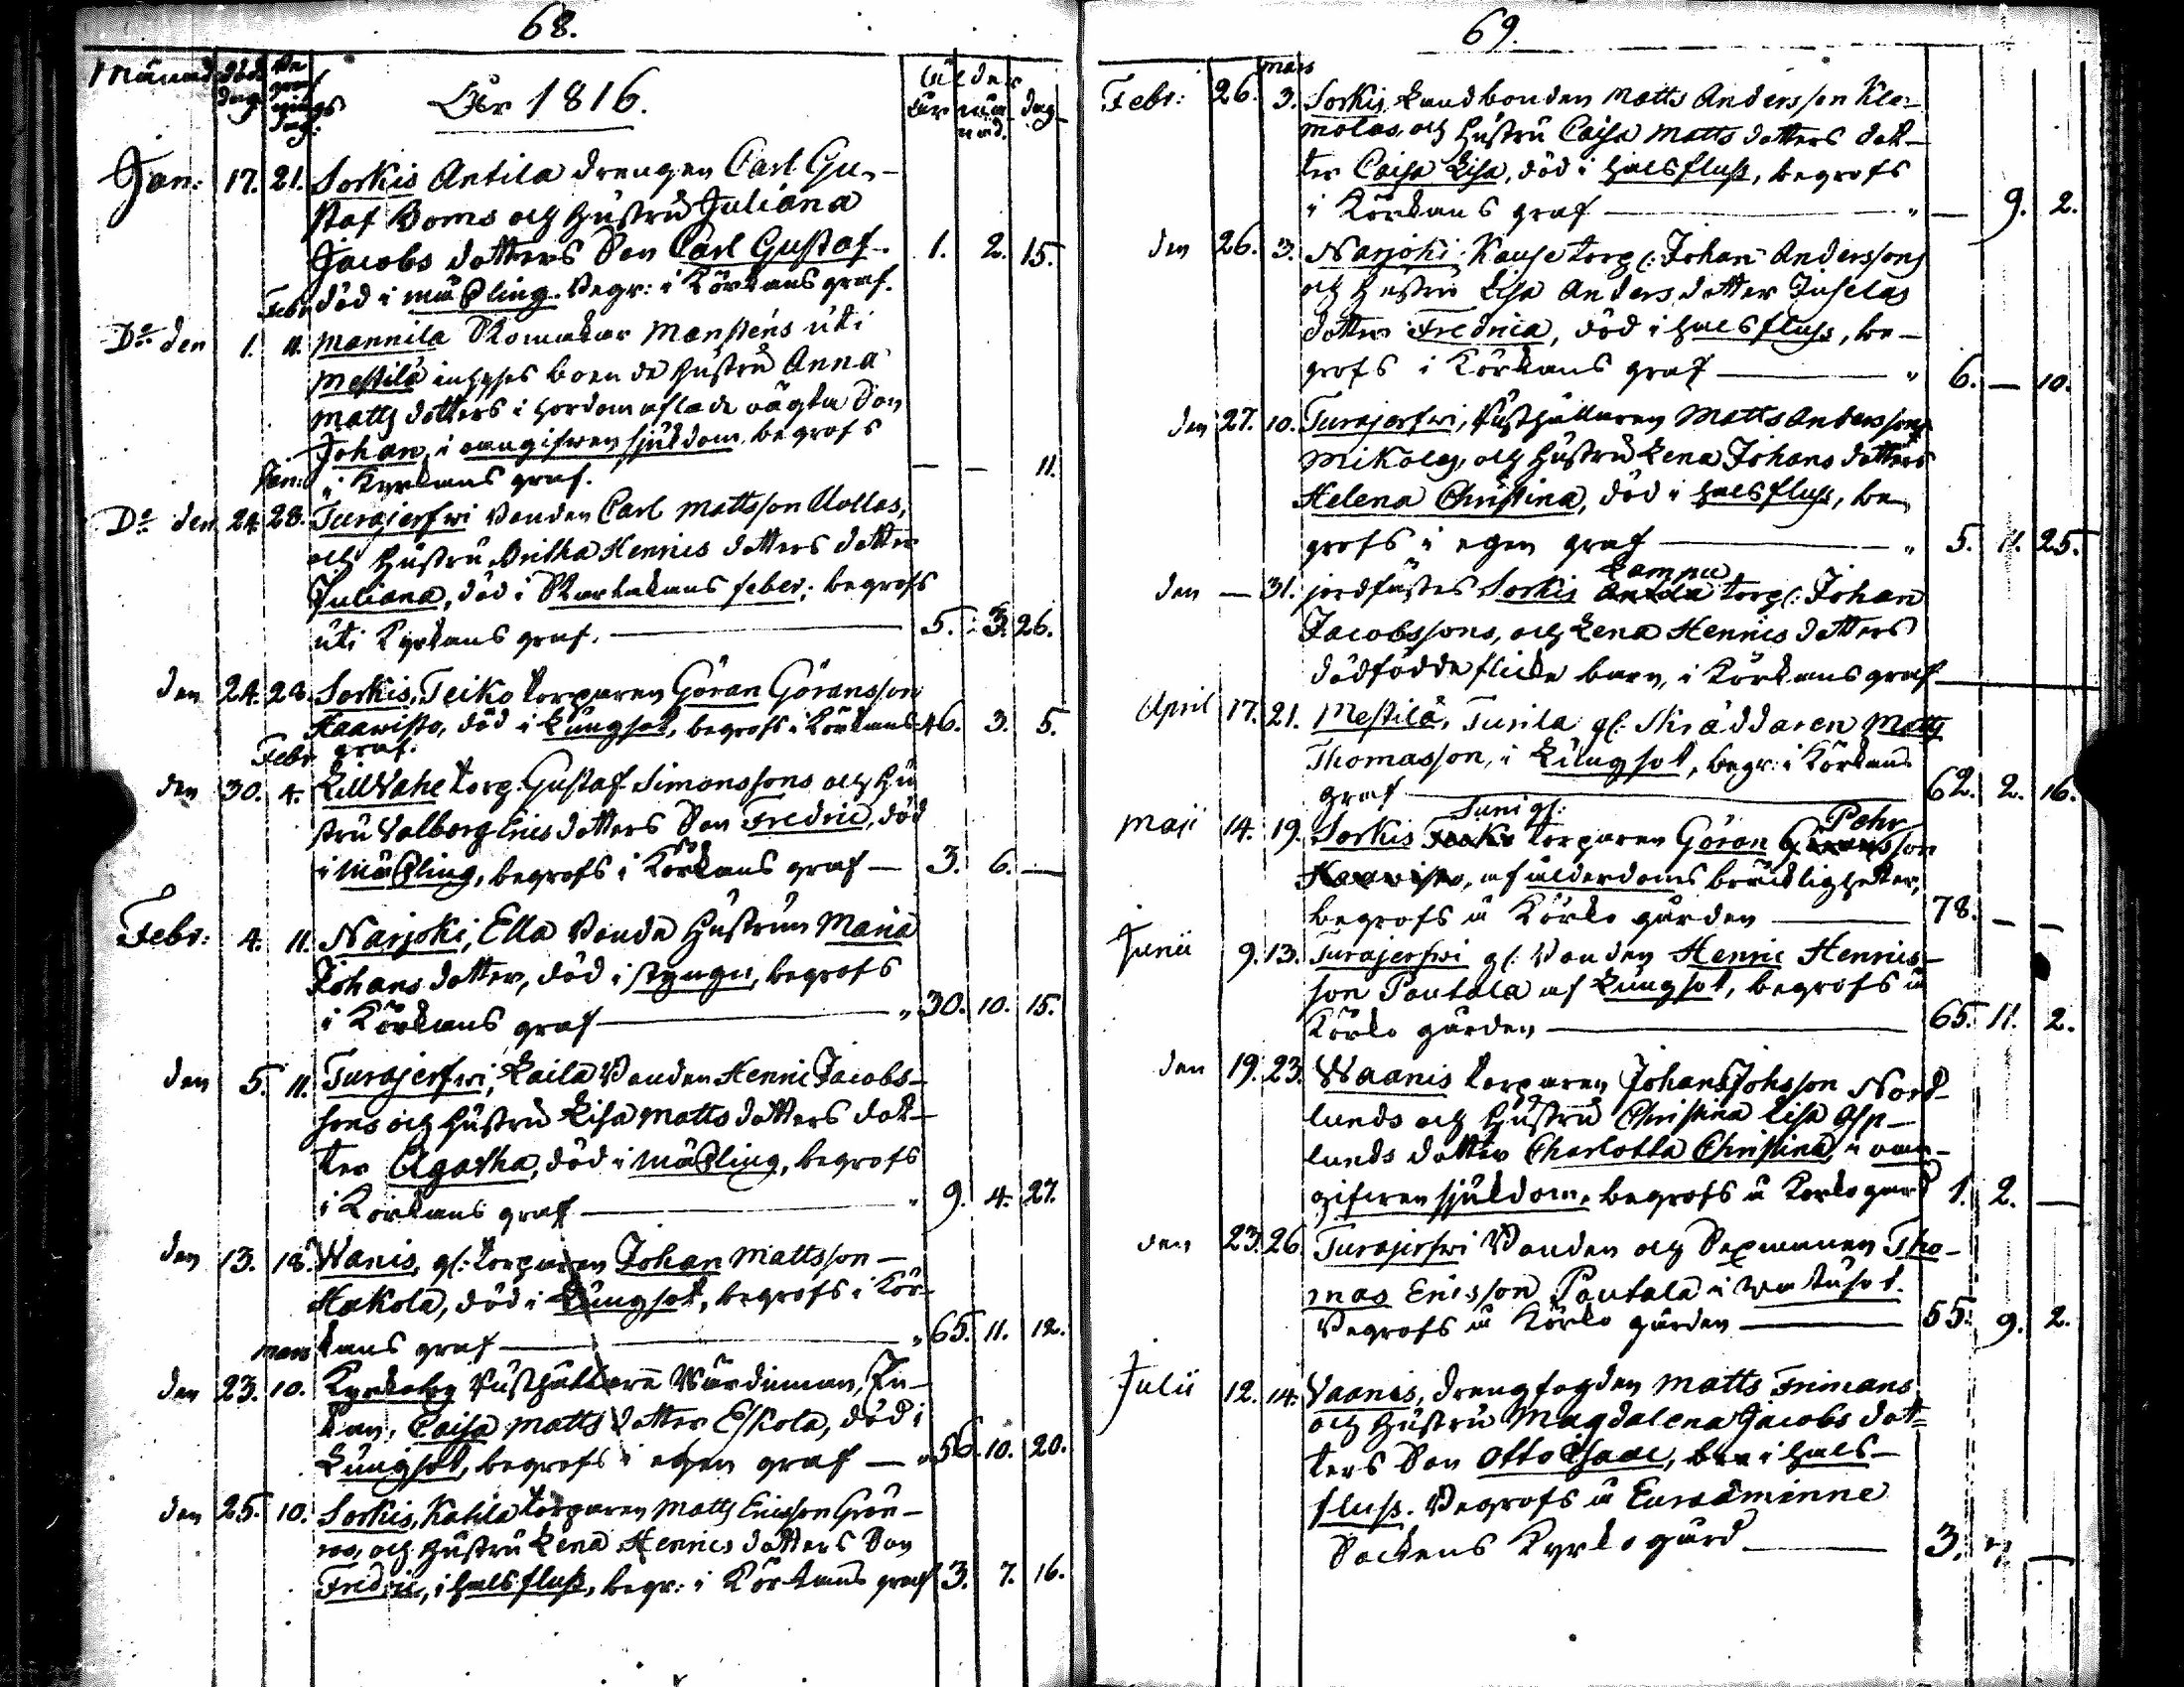 68.
Månad död dag Begrafnings dag:
År 1816.
Ålder
år månad. dag
Jan: 17. 21. Sorkis Antila drengen Carl Gu-
staf Boms och hustru Juliana
Jacobs dotters Son Carl Gustaf. 1. 2. 15.
död i mässling. Begr: i Körkans graf.
Febr
Do den 1. 11. Mannila Skomakar Monsténs uti
Mestilä inhyses boende hustru Anna
Matts dotters i hordom aflade oägta Son
Johan, i oangifven sjukdom, begrofs
i Kyrkans graf. — — 11.
Jan:
Do den 24. 28. Turajerfwi Bonden Carl Mattsson Uollas,
och hustru Britha Henrics dotters dotter
Juliana, död i Skarlakans feber; begrofs
uti Kyrkans graf. — 5. 3. 26.
den 24. 28. Sorkis, Teiko torparen Göran Göransson
Haavisto, död i Lungsot, begrofs i Körkans 46. 3. 5.
graf.
Febr
den 30. 4. Lill Vahe torp. Gustaf Simonssons och hu
stru Valborg Erics dotters Son Fredric, död
i Mässling, begrofs i Körkans graf — 3. 6. —
Febr: 4. 11. Narjoki, Ella Bonde Hustrun Maria
Johans dotter, död i styngn, begrofs
i Körkans graf — " 30. 10. 15.
den 5. 11. Turajerfwi, Laila Bonden Henric Jacobs-
sons och hustru Lisa Matts dotters dot-
ter Agatha, död i Mässling, begrofs
i Körkans graf — " 9. 4. 27.
den 13. 18. Wanis, gl: torparen Johan Mattsson —
Hakola, död i Lungsot, begrofs i Kör-
kans graf — " 65. 11. 12.
Mars
den 23. 10. Kyrkoby Rusthållare Wärdinnan, En-
kan, Caisa Matts dotter Eskola, död i
Lungsot, begrofs i egen graf — " 56. 10. 20.
den 25. 10. Sorkis, Kahla torparen Matts Ericsson Grön-
roo, och hustru Lena Henrics dotters Son
Fredric, i halsfluss, begr: i Körkans graf 3. 7. 16.
69.
Mars
Febr: 26. 3. Sorkis Landbonden Matts Andersson Kle-
molas, och hustru Caisa Matts dotters dot-
ter Caisa Lisa, död i halsfluss, begrofs
i Körkans graf — " — 9. 2.
den 26. 3. Narjoki, Kause torp: Johan Anderssons
och hustru Lisa Anders dotter Juselas
dotter Fredrica, död i halsfluss, be-
grofs i Körkans graf — " 6. — 10.
den 27. 10. Turajerfwi, Rusthållaren Matts Anderssons
Mikolas, och hustru Lena Johans dotters
Helena Christina, död i halsfluss, be-
grofs i egen graf — " 5. 11. 25.
Lampu
den — 31. jordfästes Sorkis Antila torp: Johan
Jacobssons, och Lena Henrics dotters
dödfödde flicke barn, i Körkans graf —
April 17. 21. Mestilä, Turila gl: Skräddaren Matts
Thomasson, i Lungsot, begr: i Körkans
graf — 62. 2. 16.
Suni gl: Pehr
Maji 14. 19. Sorkis Teiko torparen Göran Göransson
Haavisto, af ålderdoms bräckligheter,
begrofs å Körko gården — 78. — —
Junii 9. 13. Turajerfwi gl: Bonden Henric Henrics-
son Poutala af Lungsot, begrofs å
Körko gården — 65. 11. 2.
den 19. 23. Waanis torparen Johans Johsson Nord-
lunds och hustru Christina Lisa Asp-
lunds dotter Charlotta Christina, i oan-
gifwen sjukdom, begrofs å Korko gard 1. 2. —
den 23. 26. Turajerfwi Bonden och Sexmannen Tho-
mas Ericsson Poutala i watusot.
Begrofs å Körko gården — 55. 9. 2.
Julii 12. 14. Vaanis, drengfogden Matts Frimans
och hustru Magdalena Jacobs dot-
ters Son Otto Isaac, i hals-
fluss. Begrofs å Euraåminne
Sockens Kyrko gård — 3. —